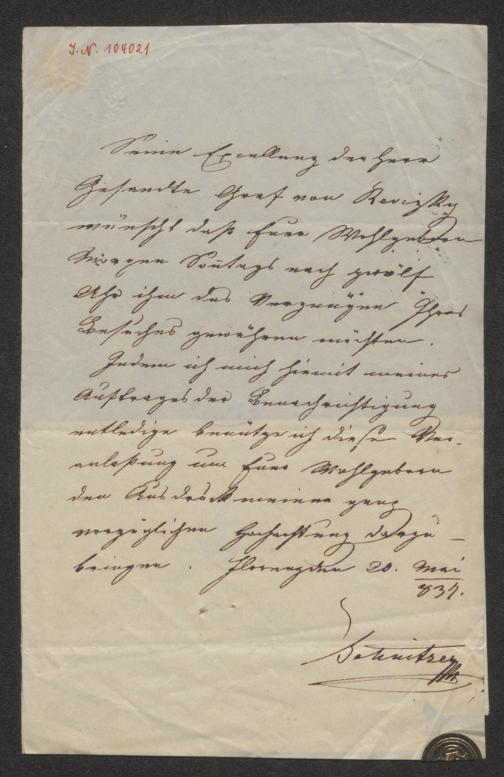 J.N. 104021
Seine Excellenz der Herr
Gesandte Graf von Revizky
wünscht daß Euer Wohlgeboren
Morgen Sontags nach zwölf
Uhr ihm das Vergnügen Ihres
Besuches gewähren möchten.
Indem ich mich hiemit meines
Auftrages der Benachrichtigung
entledige benütze ich diese Ver-
anlaßung um Euer Wohlgeboren
den Ausdruck meiner ganz
vorzüglichen Hochachtung darzu-
bringen. Florenz den 20. Mai
837.
Schnitzer